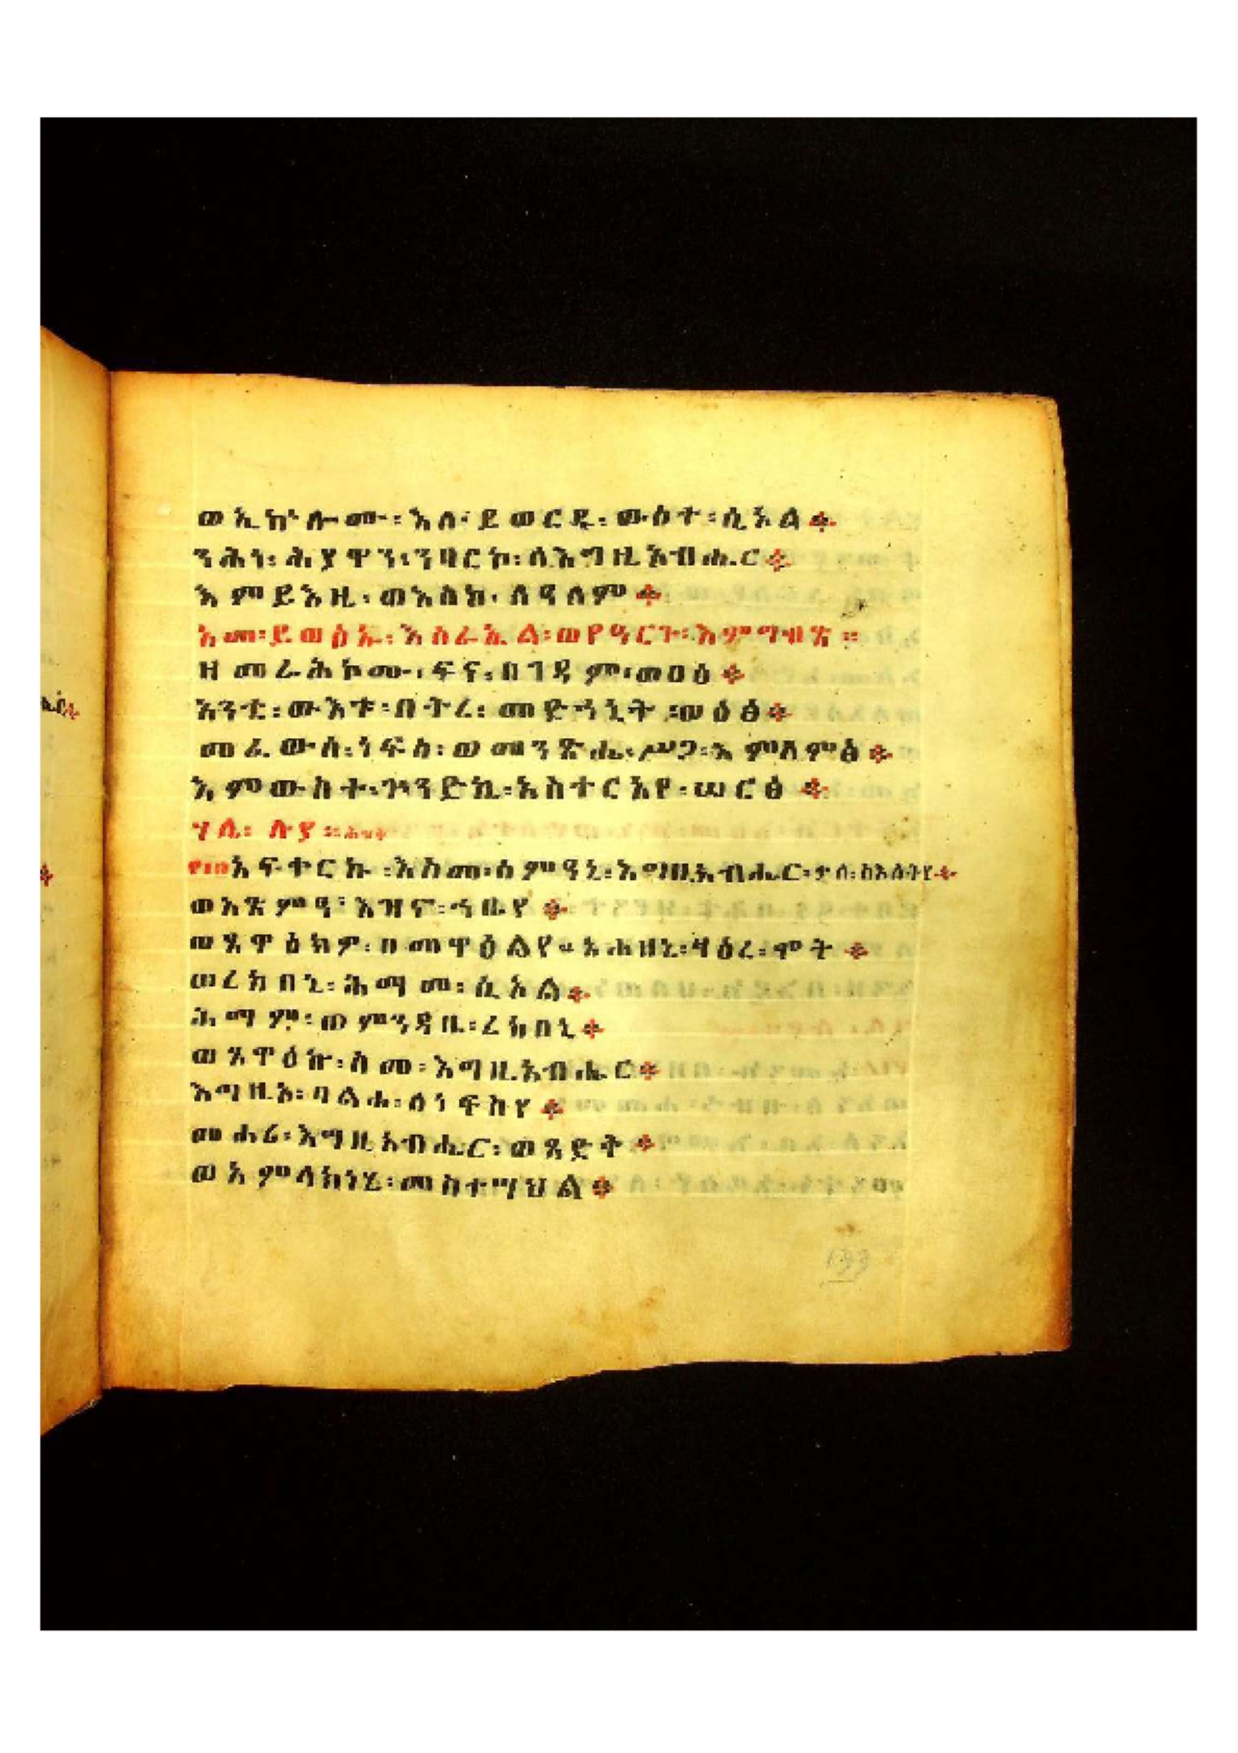 ወኢኵሎሙ፡እለ፡ይወርዱ፡ውስተ፡ሲኦል፨
ንሕነ፡ሕያዋን፡ንባርኮ፡ለእግዚአብሔር፨
እምይእዜ፡ወእስከ፡ለዓለም፨
አመ፡ይወፅኡ፡እስራኤል፡ወየዓርጉ፡እምግብጽ።
ዘመራሕኮሙ፡ፍና፡በገዳም፡ወፅፅ፨
አንቲ፡ውእቱ፡በትረ፡መድኀኒት፡ወዕፅ፨
መፈውስ፡ነፍስ፡ወመንጽሔ፡ሥጋ፡እምለምፅ፨
እምውስተ፡ጕንድኪ፡አስተርአየ፡ሠርፅ፨
ሃሌ፡ሉያ።
፻፲፬አፍቀርኩ፡እስመ፡ሰምዓኒ፡እግዚአብሔር፡ቃለ፡ስእለትየ፨
ወአጽምዓ፡እዝኖ፡ኀቤየ፨
ወጸዋዕክዎ፡በመዋዕልየ።አሐዘኒ፡ጻዕረ፡ሞት፨
ወረከበኒ፡ሕማመ፡ሲኦል፨
ሕማም፡ወምንዳቤ፡ረከበኒ፨
ወጸዋዕኩ፡ስመ፡እግዚአብሔር፨
እግዚኦ፡ባልሐ፡ለነፍስየ፨
መሐሪ፡እግዚአብሔር፡ወጻድቅ፨
ወአምላክነሂ፡መስተሣህል፨
133